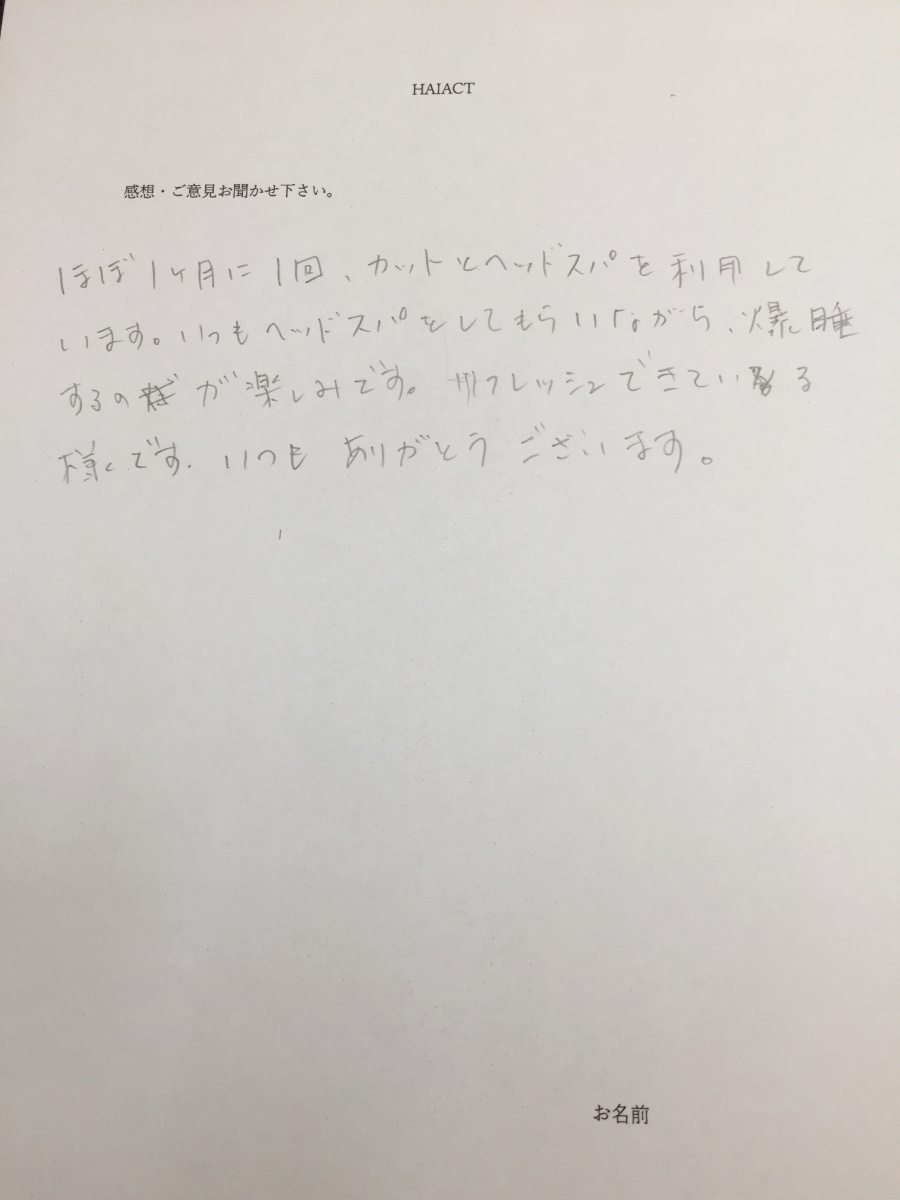 HAIACT
感想・ご意見お聞かせ下さい。
ほぼ1ヶ月に1回、カットとヘッドスパを利用して
います。いつもヘッドスパをしてもらいながら、爆睡
するのが楽しみです。リフレッシュできている
様です。いつもありがとうございます。
お名前